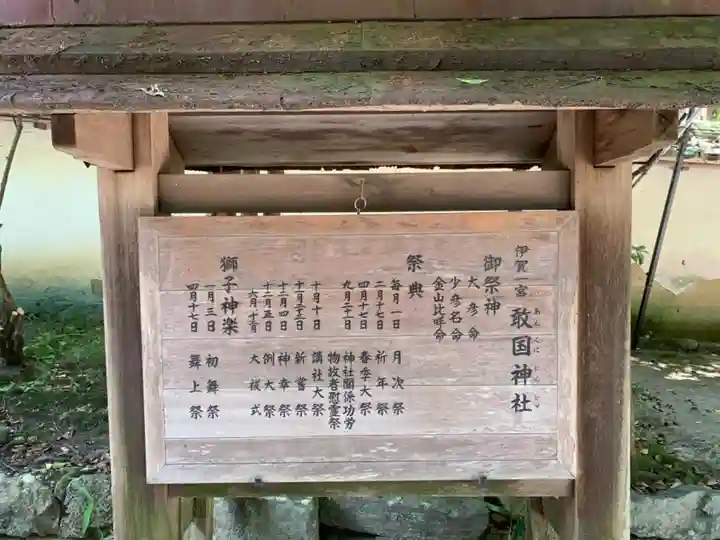 伊賀一宮 敢国神社
あえくにじんじゃ
御祭神
大彦命
少彦名命
金山比咩命
祭典
毎月一日 月次祭
二月十七日 祈年祭
四月十七日 春季大祭
九月二十日 神社関係功労物故者慰霊祭
十月十日 講社大祭
十一月二十三日 新嘗祭
十二月四日 神幸祭
十二月五日 例大祭
大祓式
獅子神楽
一月三日 初舞祭
四月十七日 舞上祭